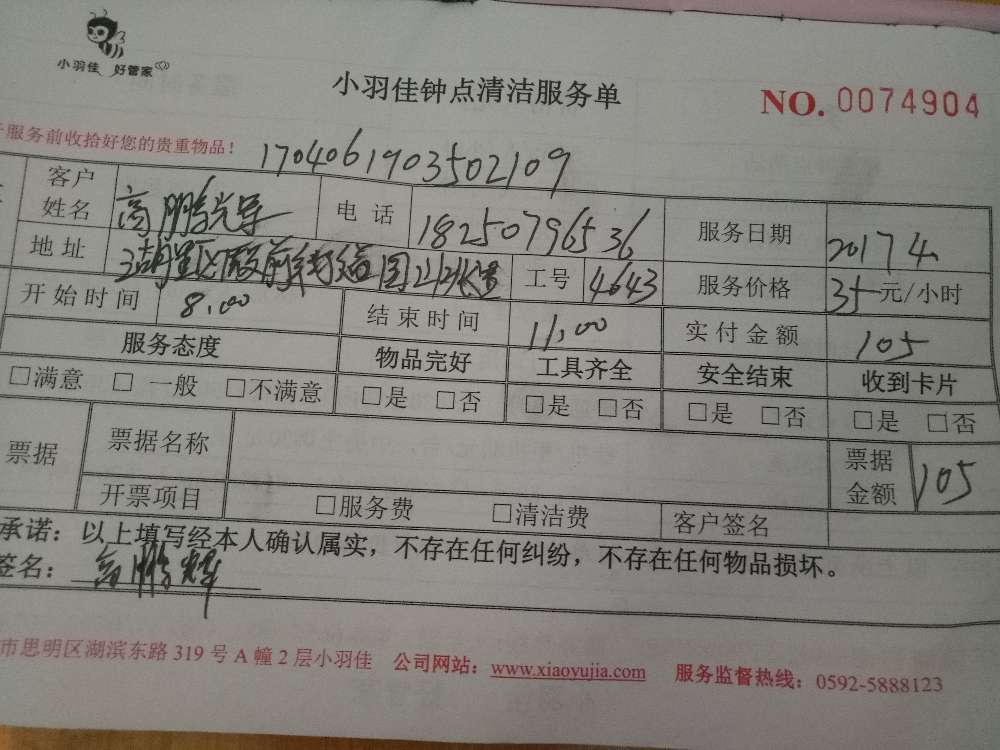 小羽佳 好管家
小羽佳钟点清洁服务单
NO. 0074904
服务前收拾好您的贵重物品！
1704061903502109
客户姓名 高鹏 电话 18250796536 服务日期 2017 4
地址 湖里区殿前街道 工号 4643 服务价格 35元/小时
开始时间 8:00 结束时间 11:00 实付金额 105
服务态度 物品完好 工具齐全 安全结束 收到卡片
□满意 □一般 □不满意 □是 □否 □是 □否 □是 □否 □是 □否
票据 票据名称 票据金额 105
开票项目 □服务费 □清洁费 客户签名
承诺：以上填写经本人确认属实，不存在任何纠纷，不存在任何物品损坏。
签名：高鹏辉
市思明区湖滨东路 319 号 A 幢 2 层小羽佳 公司网站：www.xiaoyujia.com 服务监督热线：0592-5888123